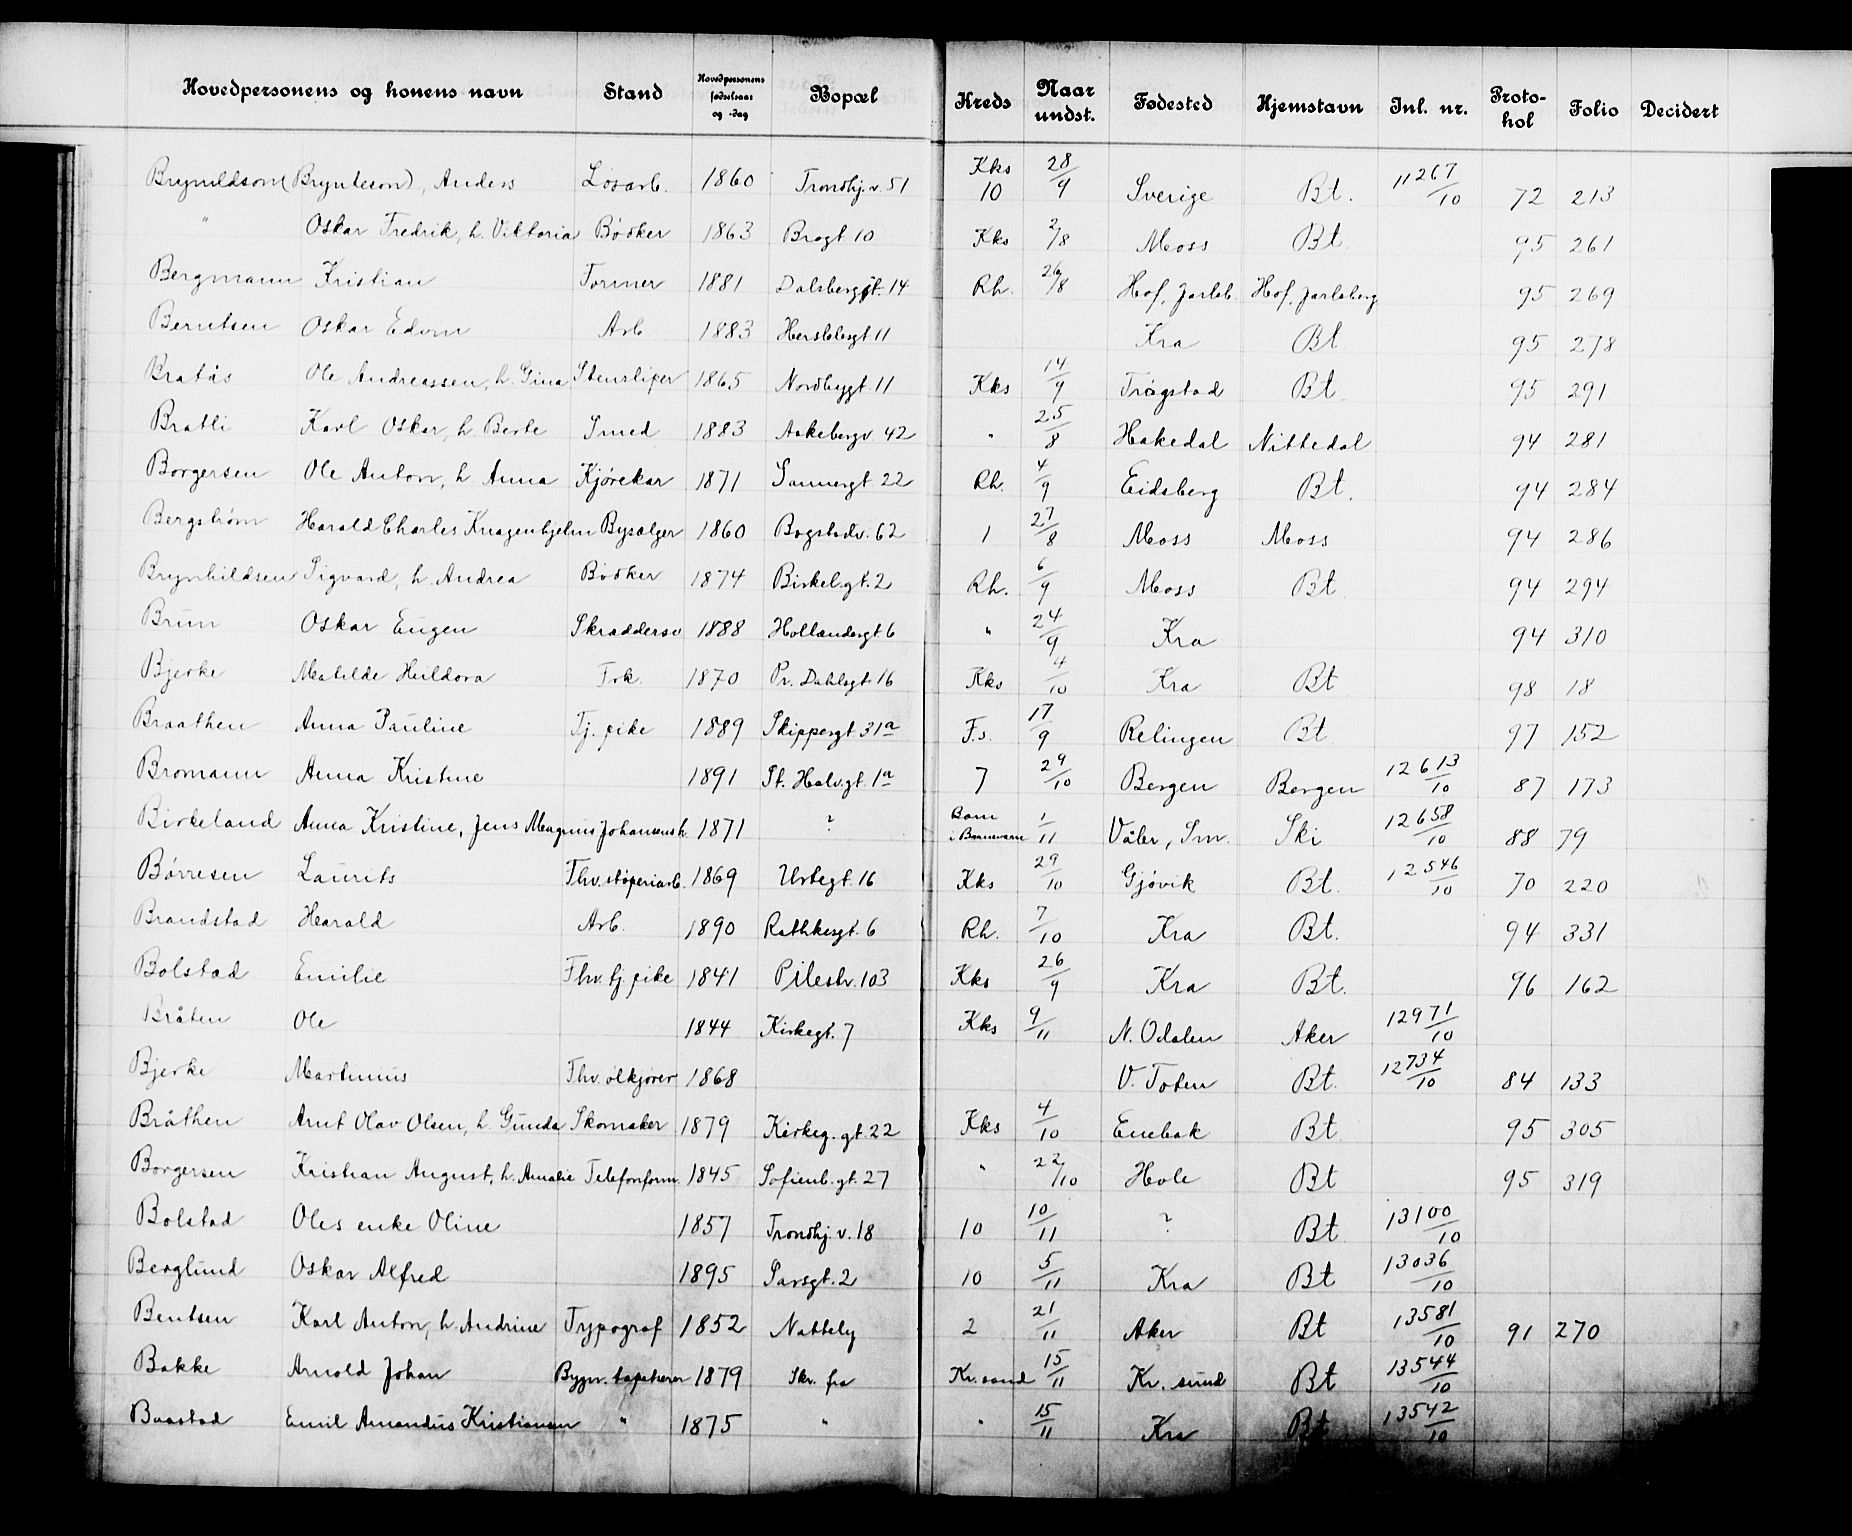 Hovedpersonens og konens navn Stand Hovedpersonens fødselsaar og -dag Bopæl Kreds Naar undst. Fødested Hjemstavn Inl. nr. Proto-kol Folio Decidert
Brynildson (Brynteson), Anders Løsarb. 1860 Trondhj.v. 51 Kks 10 28/9 Sverige Bt. 11267/10 72 213
" Oskar Fredrik, h. Viktoria Bødker 1863 Brogt 10 Kks 2/8 Moss Bt. 95 261
Bergmann Kristian Former 1881 Dalsberggt. 14 Rh. 26/8 Hof, Jarlsb. Hof, Jarlsberg 95 269
Berntsen Oskar Edvin Arb 1883 Herslebsgt 11 Kra Bt 95 278
Bratås Ole Andreassen, h. Gina Stensliper 1865 Nordbygt 11 Kks 14/9 Trøgstad Bt. 95 291
Bratli Karl Oskar, h Berte Smed 1883 Aakebergv. 42 " 25/8 Hakedal Nittedal 94 281
Borgersen Ole Anton, h Anna Kjørekar 1871 Sannergt 22 Rh. 4/9 Eidsberg Bt. 94 284
Bergstrøm Harald Charles Knagenhjelm Bysælger 1860 Bogstadv. 62 1 27/8 Moss Moss 94 286
Brynhildsen Sigvard, h. Andrea Bødker 1874 Birkel.gt. 2 Rh. 6/9 Moss Bt 94 294
Brun Oskar Eugen Skræddersv 1888 Hollendergt 6 " 24/9 Kra 94 310
Bjerke Matilde Heildora Frk. 1870 Pr. Dahlsgt 16 Kks 4/10 Kra Bt 98 18
Braathen Anna Pauline Tj. pike 1889 Skippergt 31a F.s. 17/9 Relingen Bt 97 152
Bromann Anna Kristine 1891 St. Halv.gt. 1a 7 29/10 Bergen Bergen 12613/10 87 173
Birkeland Anna Kristine, Jens Magnus Johansens h. 1871 ? Barn i Barnevern 1/11 Våler, Sm. Ski 12658/10 88 79
Børresen Laurits Fhv. støperiarb. 1869 Urtegt. 16 Kks 29/10 Gjøvik Bt. 12546/10 70 220
Brandstad Harald Arb. 1890 Rathkesgt. 6 Rh. 7/10 Kra Bt. 94 331
Bolstad Emilie Fhv. tj. pike 1841 Pilestr. 103 Kks 26/9 Kra Bt. 96 162
Bråten Ole 1844 Kirkegt. 7 Kks 9/11 N. Odalen Aker 12971/10
Bjerke Martinius Fhv. ølkjører 1868 V. Toten Bt. 12734/10 84 133
Bråthen Arnt Olav Olsen, h. Gunda Skomaker 1879 Kirkeg.gt. 22 Kks 4/10 Enebak Bt. 95 305
Borgersen Kristian August, h. Amalie Telefonform. 1845 Sofienb.gt. 27 " 22/10 Hole Bt 95 319
Bolstad Oles enke Oline 1857 Trondhj. v. 18 10 10/11 ? Bt 13100/10
Berglund Oskar Alfred 1895 Sarsgt. 2 10 5/11 Kra Bt 13036/10
Bentsen Karl Anton, h Andrine Typograf 1852 Natteby 2 21/11 Aker Bt 13581/10 91 270
Bakke Arnold Johan Bygn. tapetserer 1879 Skr. fra Kr.sand 15/11 Kr. sund Bt 13544/10
Baastad Emil Amandus Kristiansen " 1875 " " 15/11 Kra Bt 13542/10